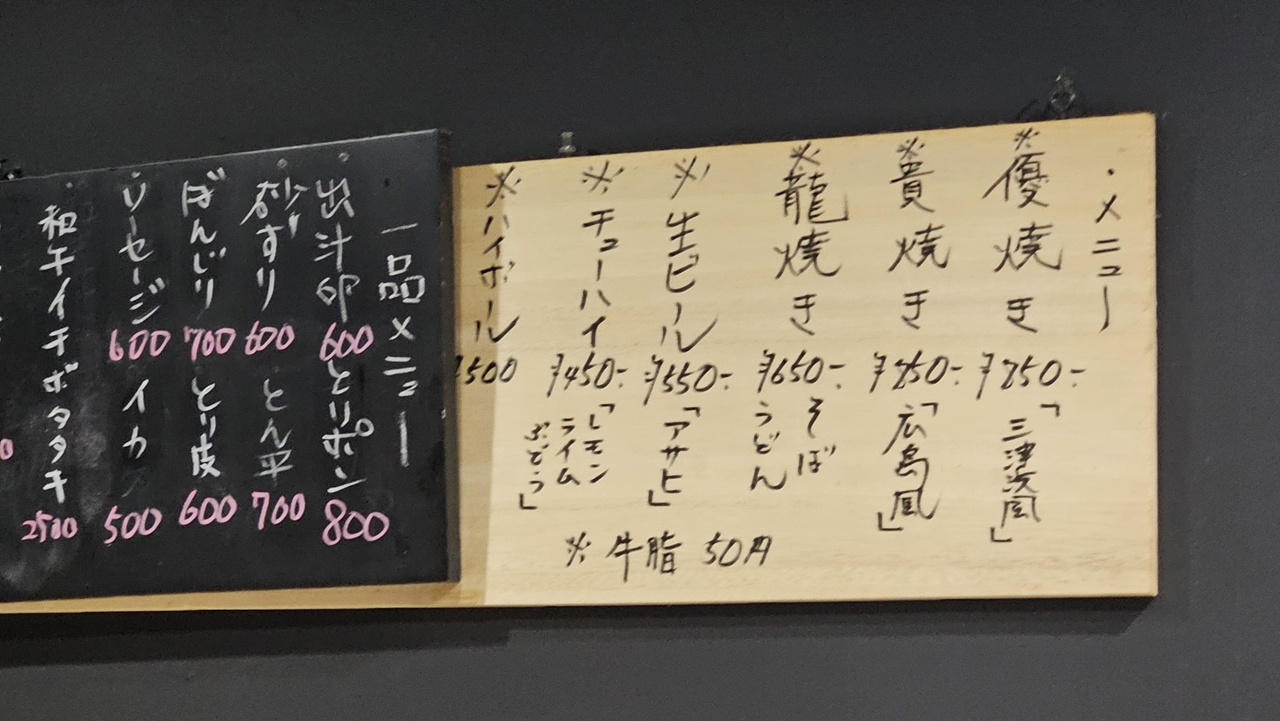 ・メニュー
※優焼き ¥850-
「三津浜風」
※貴焼き ¥850-
「広島風」
※龍焼き ¥650-
そば
うどん
※生ビール ¥550-
「アサヒ」
※チューハイ ¥450-
「レモン
ライム
ぶどう」
※ハイボール ¥500
※牛脂 50円
一品メニュー
・出汁卵 600
とりポン 800
・砂ずり 600
とん平 700
ぼんじり 700
とり皮 600
・ソーセージ 600
イカ 500
・和牛イチボタタキ 2500